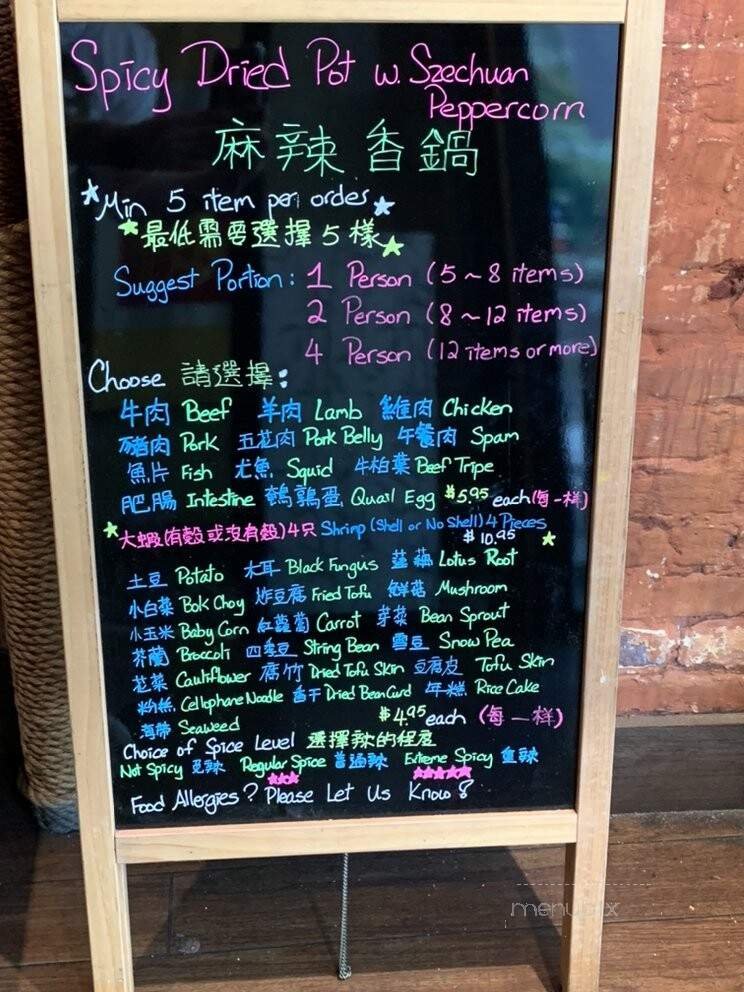 Spicy Dried Pot w. Szechuan
Peppercorn
麻辣香鍋
Min 5 item per order
最低需要選擇5樣
Suggest Portion: 1 Person (5~8 items)
2 Person (8~12 items)
4 Person (12 items or more)
Choose 請選擇:
牛肉 Beef 羊肉 Lamb 雞肉 Chicken
豬肉 Pork 五花肉 Pork Belly 午餐肉 Spam
魚片 Fish 尤魚 Squid 牛柏葉 Beef Tripe
肥腸 Intestine 鵪鶉蛋 Quail Egg $5.95 each (每一样)
大蝦(有殼或沒有殼)4只 Shrimp (Shell or No Shell) 4 Pieces
$10.95
土豆 Potato 木耳 Black Fungus 蓮藕 Lotus Root
小白菜 Bok Choy 炸豆腐 Fried Tofu 鮮菇 Mushroom
小玉米 Baby Corn 紅蘿蔔 Carrot 芽菜 Bean Sprout
芥蘭 Broccoli 四季豆 String Bean 雪豆 Snow Pea
花菜 Cauliflower 腐竹 Dried Tofu Skin 豆腐皮 Tofu Skin
粉絲 Cellophane Noodle 香干 Dried Bean Curd 年糕 Rice Cake
海帶 Seaweed $4.95 each (每一样)
Choice of Spice Level 選擇辣的程度
Not Spicy 免辣 Regular Spice 普通辣 Extreme Spicy 重辣
Food Allergies? Please Let Us Know?
menupix